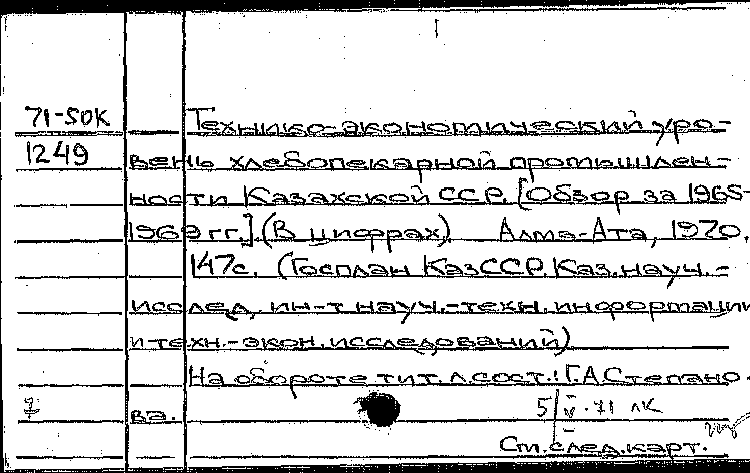 71-50К Технико-экономический уро-
1249 вень хлебопекарной промышлен-
ности Казахской ССР. [Обзор за 1965-
1969 гг.] (В цифрах) Алма-Ата, 1970.
147с. (Госплан КазССР. Каз. науч.-
исслед. ин-т науч.-техн. информации
и техн.-экон. исследований)
На обороте тит. л. сост.: Г.А. Степано-
ва. 5/V-71 ЛК
См. след. карт.